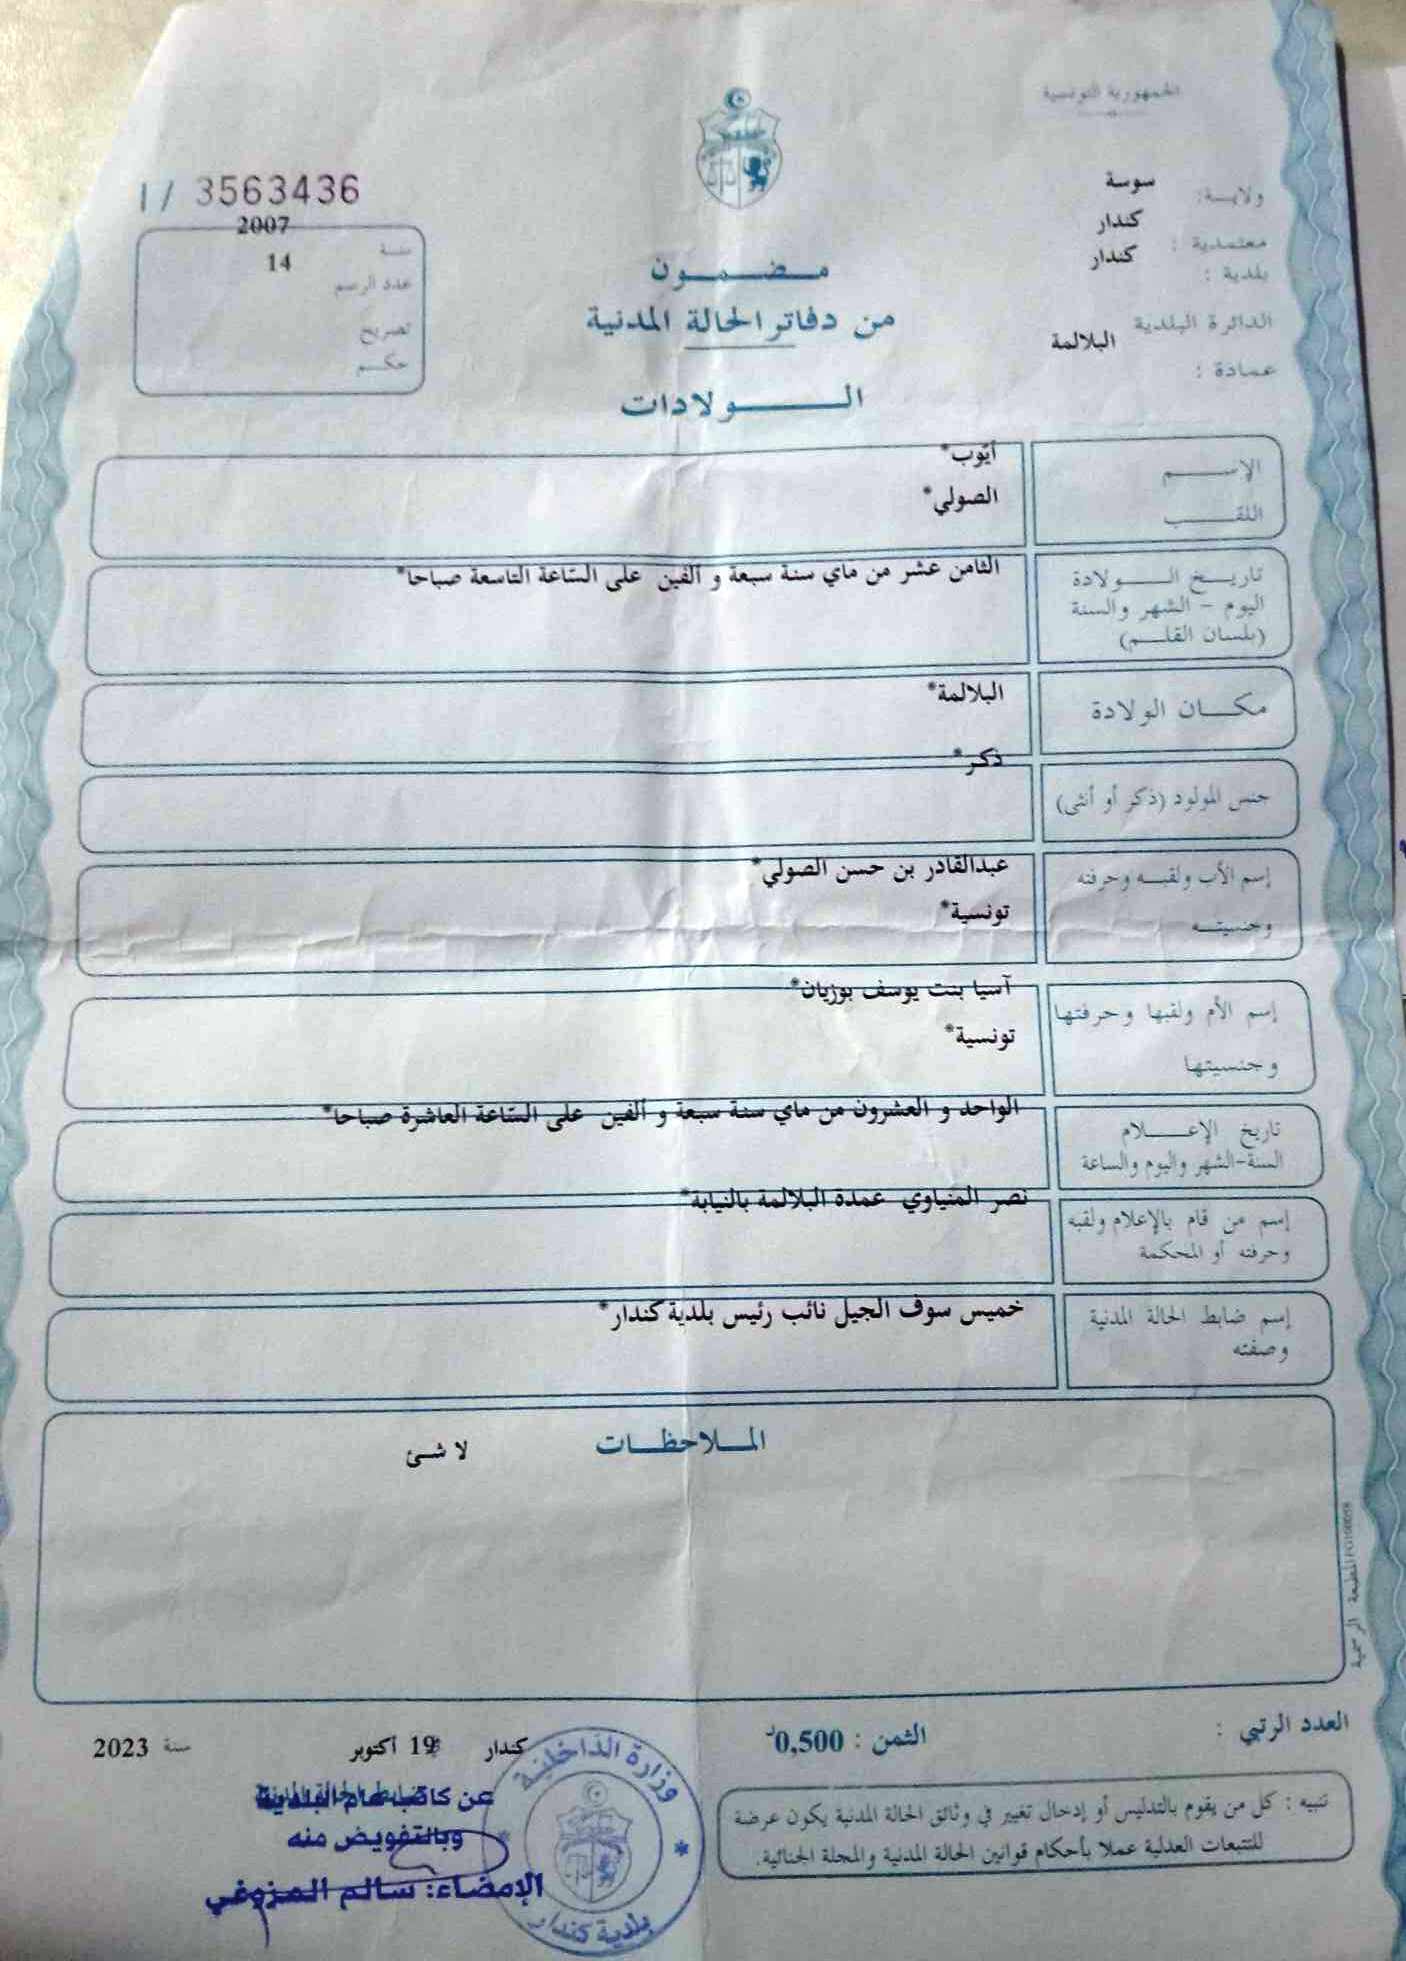 الجمهورية التونسية
1 / 3563436
ولاية: سوسة
معتمدية : كندار
بلدية : كندار
الدائرة البلدية
عمادة : البلالمة
سنة 2007
عدد الرسم 14
تصريح
حكم
مضمون
من دفاتر الحالة المدنية
الولادات
الإسم أيّوب*
اللقب الصولي*
تاريخ الولادة الثامن عشر من ماي سنة سبعة و ألفين على السّاعة التاسعة صباحا*
اليوم - الشهر والسنة
(بلسان القلم)
مكان الولادة البلالمة*
جنس المولود (ذكر أو أنثى) ذكر*
إسم الأب ولقبه وحرفته عبدالقادر بن حسن الصولي*
وجنسيته تونسية*
إسم الأم ولقبها وحرفتها آسيا بنت يوسف بوزيان*
وجنسيتها تونسية*
تاريخ الإعلام الواحد و العشرون من ماي سنة سبعة و ألفين على السّاعة العاشرة صباحا*
السنة-الشهر واليوم والساعة
إسم من قام بالإعلام ولقبه نصر المنياوي عمدة البلالمة بالنيابة*
وحرفته أو المحكمة
إسم ضابط الحالة المدنية خميس سوف الجيل نائب رئيس بلدية كندار*
وصفته
الملاحظات
لا شئ
المطبعة الرسمية
العدد الرتبي :
الثمن : 0,500د
كندار 19 أكتوبر سنة 2023
تنبيه : كل من يقوم بالتدليس أو إدخال تغيير في وثائق الحالة المدنية يكون عرضة
للتتبعات العدلية عملا بأحكام قوانين الحالة المدنية والمجلة الجنائية.
عن كاتب عام البلدية
وبالتفويض منه
الإمضاء: سالم المزوغي
وزارة الداخلية
بلدية كندار